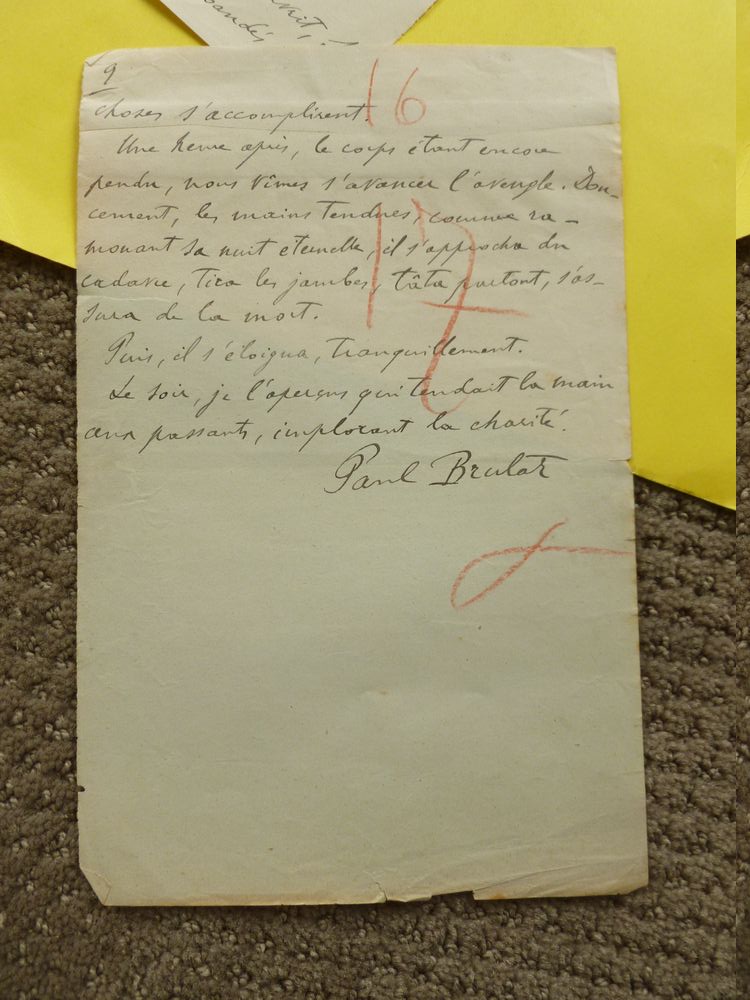 nuit,
9
16
choses s'accomplirent.
Une heure après, le corps étant encore
pendu, nous vîmes s'avancer l'aveugle. Dou-
cement, les mains tendues, comme ra-
monant sa nuit eternelle, il s'approcha du
cadavre, tira les jambes, tâta partout, s'as-
sura de la mort.
17
Puis, il s'éloigna, tranquillement.
Le soir, je l'aperçus qui tendait la main
aux passants, implorant la charité.
Paul Brulat